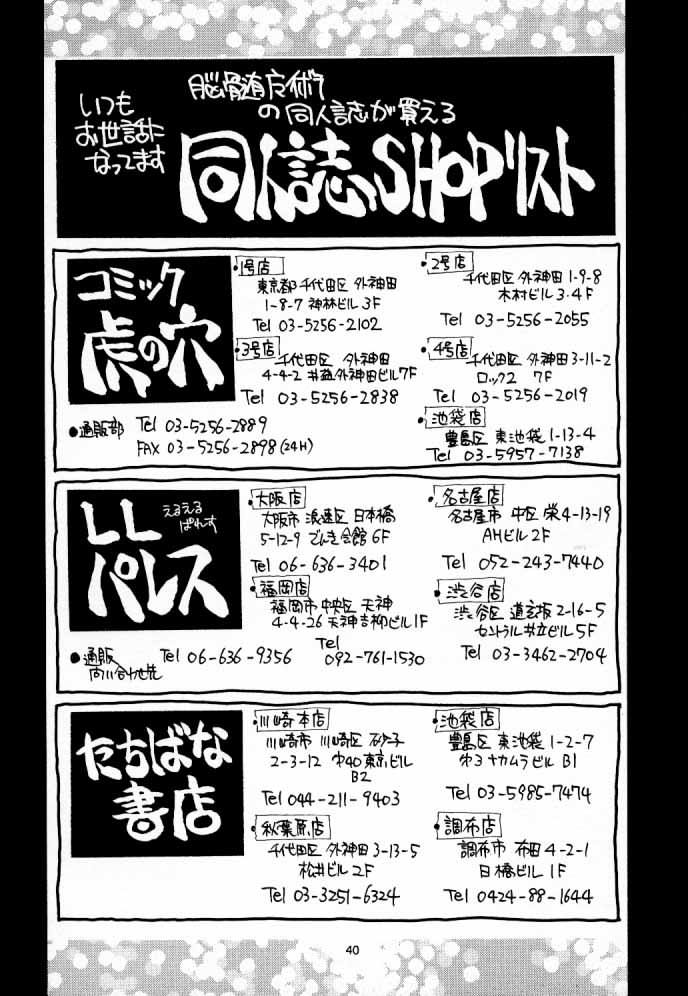 いつも
お世話に
なってます
脳髄応用術
の同人誌が買える
同人誌SHOPリスト
コミック
虎の穴
・1号店
東京都千代田区 外神田
1-8-7 神林ビル 3F
Tel 03-5256-2102
・2号店
千代田区 外神田 1-9-8
木村ビル 3・4F
Tel 03-5256-2055
・3号店
千代田区 外神田
4-4-2 外神田ビル7F
Tel 03-5256-2838
・4号店
千代田区 外神田3-11-2
ロック2 7F
Tel 03-5256-2019
・池袋店
豊島区 東池袋 1-13-4
Tel 03-5957-7138
●通販部 Tel 03-5256-2889
FAX 03-5256-2898(24H)
LL
パレス
えるえる
ぱれす
・大阪店
大阪市 浪速区 日本橋
5-12-9 でんき会館 6F
Tel 06-636-3401
・名古屋店
名古屋市 中区 栄4-13-19
AHビル2F
Tel 052-243-7440
・福岡店
福岡市中央区 天神
4-4-26 天神吉柳ビル1F
Tel
092-761-1530
・渋谷店
渋谷区 道玄坂 2-16-5
セントラル共立ビル5F
Tel 03-3462-2704
●通販
問い合わせ先
Tel 06-636-9356
たちばな
書店
・川崎本店
川崎市 川崎区 砂子
2-3-12 第40東京ビル
B2
Tel 044-211-9403
・池袋店
豊島区 東池袋 1-2-7
第3ナカムラビル B1
Tel 03-5985-7474
・秋葉原店
千代田区 外神田 3-13-5
松井ビル 2F
Tel 03-3251-6324
・調布店
調布市 布田 4-2-1
日橋ビル 1F
Tel 0424-88-1644
40